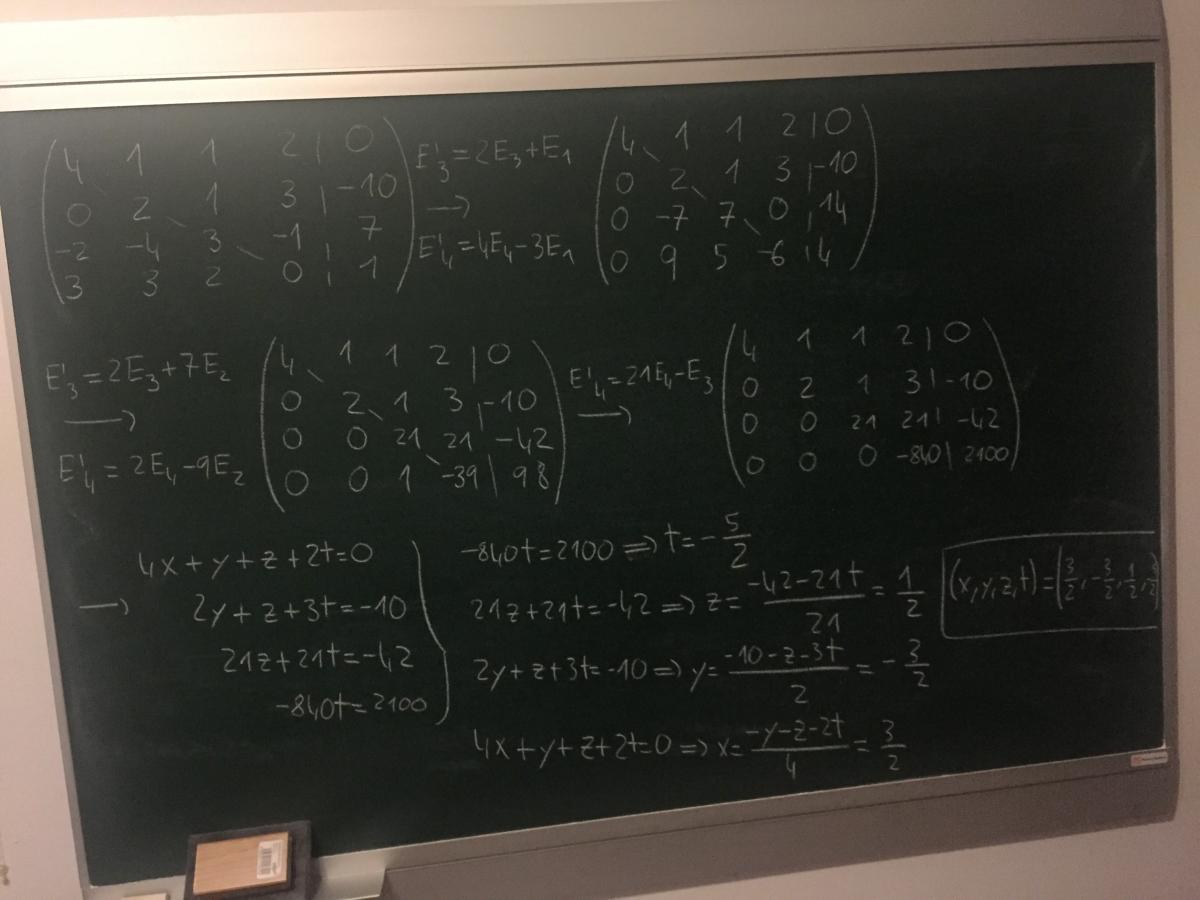 4 1 1 2 | 0
0 2 1 3 | -10
-2 -4 3 -1 | 7
3 3 2 0 | 1
E'₃=2E₃+E₁
→
E'₄=4E₄-3E₁
4 1 1 2 | 0
0 2 1 3 | -10
0 -7 7 0 | 14
0 9 5 -6 | 4
E'₃=2E₃+7E₂
→
E'₄=2E₄-9E₂
4 1 1 2 | 0
0 2 1 3 | -10
0 0 21 21 -42
0 0 1 -39 | 98
E'₄=21E₄-E₃
→
4 1 1 2 | 0
0 2 1 3 | -10
0 0 21 21 | -42
0 0 0 -840 | 2100
→
4x+y+z+2t=0
2y+z+3t=-10
21z+21t=-42
-840t=2100
-840t=2100 ⇒ t=-5/2
21z+21t=-42 ⇒ z=(-42-21t)/21=1/2
2y+z+3t=-10 ⇒ y=(-10-z-3t)/2=-3/2
4x+y+z+2t=0 ⇒ x=(-y-z-2t)/4=3/2
(x,y,z,t)=(3/2,-3/2,1/2,